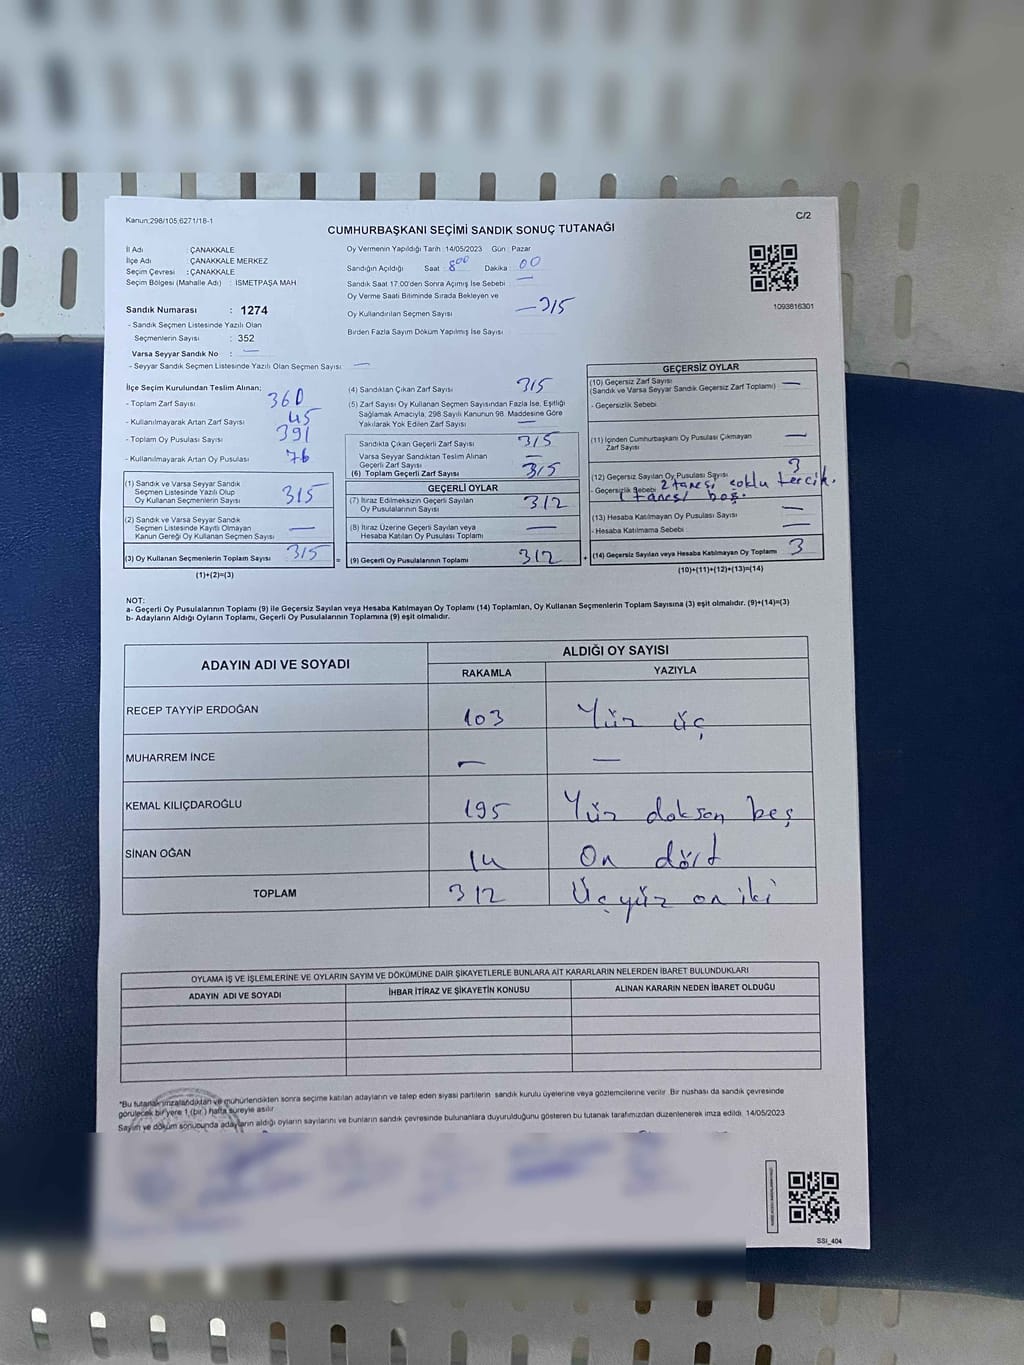 Kanun:298/105,6271/18-1
C/2
CUMHURBAŞKANI SEÇİMİ SANDIK SONUÇ TUTANAĞI
İl Adı : ÇANAKKALE
İlçe Adı : ÇANAKKALE MERKEZ
Seçim Çevresi : ÇANAKKALE
Seçim Bölgesi (Mahalle Adı) : İSMETPAŞA MAH
Oy Vermenin Yapıldığı Tarih :14/05/2023 Gün : Pazar
Sandığın Açıldığı Saat : 8 00 Dakika : 00
Sandık Saat 17.00'den Sonra Açımış İse Sebebi : —
Oy Verme Saati Bitiminde Sırada Bekleyen ve
Oy Kullandırılan Seçmen Sayısı : — 315
Birden Fazla Sayım Döküm Yapılmış İse Sayısı :
1093816301
Sandık Numarası : 1274
- Sandık Seçmen Listesinde Yazılı Olan
Seçmenlerin Sayısı : 352
Varsa Seyyar Sandık No : —
- Seyyar Sandık Seçmen Listesinde Yazılı Olan Seçmen Sayısı : —
İlçe Seçim Kurulundan Teslim Alınan;
- Toplam Zarf Sayısı : 360
- Kullanılmayarak Artan Zarf Sayısı : 45
- Toplam Oy Pusulası Sayısı : 391
- Kullanılmayarak Artan Oy Pusulası : 76
(1) Sandık ve Varsa Seyyar Sandık
Seçmen Listesinde Yazılı Olup
Oy Kullanan Seçmenlerin Sayısı 315
(2) Sandık ve Varsa Seyyar Sandık
Seçmen Listesinde Kayıtlı Olmayan
Kanun Gereği Oy Kullanan Seçmen Sayısı —
(3) Oy Kullanan Seçmenlerin Toplam Sayısı 315
(1)+(2)=(3)
(4) Sandıktan Çıkan Zarf Sayısı 315
(5) Zarf Sayısı Oy Kullanan Seçmen Sayısından Fazla İse, Eşitliği
Sağlamak Amacıyla, 298 Sayılı Kanunun 98. Maddesine Göre
Yakılarak Yok Edilen Zarf Sayısı —
Sandıkta Çıkan Geçerli Zarf Sayısı 315
Varsa Seyyar Sandıktan Teslim Alınan
Geçerli Zarf Sayısı —
(6) Toplam Geçerli Zarf Sayısı 315
GEÇERLİ OYLAR
(7) İtiraz Edilmeksizin Geçerli Sayılan
Oy Pusulalarının Sayısı 312
(8) İtiraz Üzerine Geçerli Sayılan veya
Hesaba Katılan Oy Pusulası Toplamı —
= (9) Geçerli Oy Pusulalarının Toplamı 312
GEÇERSİZ OYLAR
(10) Geçersiz Zarf Sayısı
(Sandık ve Varsa Seyyar Sandık Geçersiz Zarf Toplamı) —
- Geçersizlik Sebebi :
(11) İçinden Cumhurbaşkanı Oy Pusulası Çıkmayan
Zarf Sayısı —
(12) Geçersiz Sayılan Oy Pusulası Sayısı 3
- Geçersizlik Sebebi : 2 tanesi çoklu tercih.
1 tanesi boş.
(13) Hesaba Katılmayan Oy Pusulası Sayısı —
- Hesaba Katılmama Sebebi : —
+ (14) Geçersiz Sayılan veya Hesaba Katılmayan Oy Toplamı 3
(10)+(11)+(12)+(13)=(14)
NOT:
a- Geçerli Oy Pusulalarının Toplamı (9) ile Geçersiz Sayılan veya Hesaba Katılmayan Oy Toplamı (14) Toplamları, Oy Kullanan Seçmenlerin Toplam Sayısına (3) eşit olmalıdır. (9)+(14)=(3)
b- Adayların Aldığı Oyların Toplamı, Geçerli Oy Pusulalarının Toplamına (9) eşit olmalıdır.
ADAYIN ADI VE SOYADI ALDIĞI OY SAYISI
RAKAMLA YAZIYLA
RECEP TAYYİP ERDOĞAN 103 Yüz üç
MUHARREM İNCE — —
KEMAL KILIÇDAROĞLU 195 Yüz doksan beş
SİNAN OĞAN 14 On dört
TOPLAM 312 Üçyüz on iki
OYLAMA İŞ VE İŞLEMLERİNE VE OYLARIN SAYIM VE DÖKÜMÜNE DAİR ŞİKAYETLERLE BUNLARA AİT KARARLARIN NELERDEN İBARET BULUNDUKLARI
ADAYIN ADI VE SOYADI İHBAR İTİRAZ VE ŞİKAYETİN KONUSU ALINAN KARARIN NEDEN İBARET OLDUĞU
*Bu tutanak imzalandıktan ve mühürlendikten sonra seçime katılan adayların ve talep eden siyasi partilerin sandık kurulu üyelerine veya gözlemcilerine verilir. Bir nüshası da sandık çevresinde
görülecek bir yere 1 (bir ) hafta süreyle asılır.
Sayım ve döküm sonucunda adayların aldığı oyların sayılarını ve bunların sandık çevresinde bulunanlara duyurulduğunu gösteren bu tutanak tarafımızdan düzenlenerek imza edildi. 14/05/2023
SSİ_404